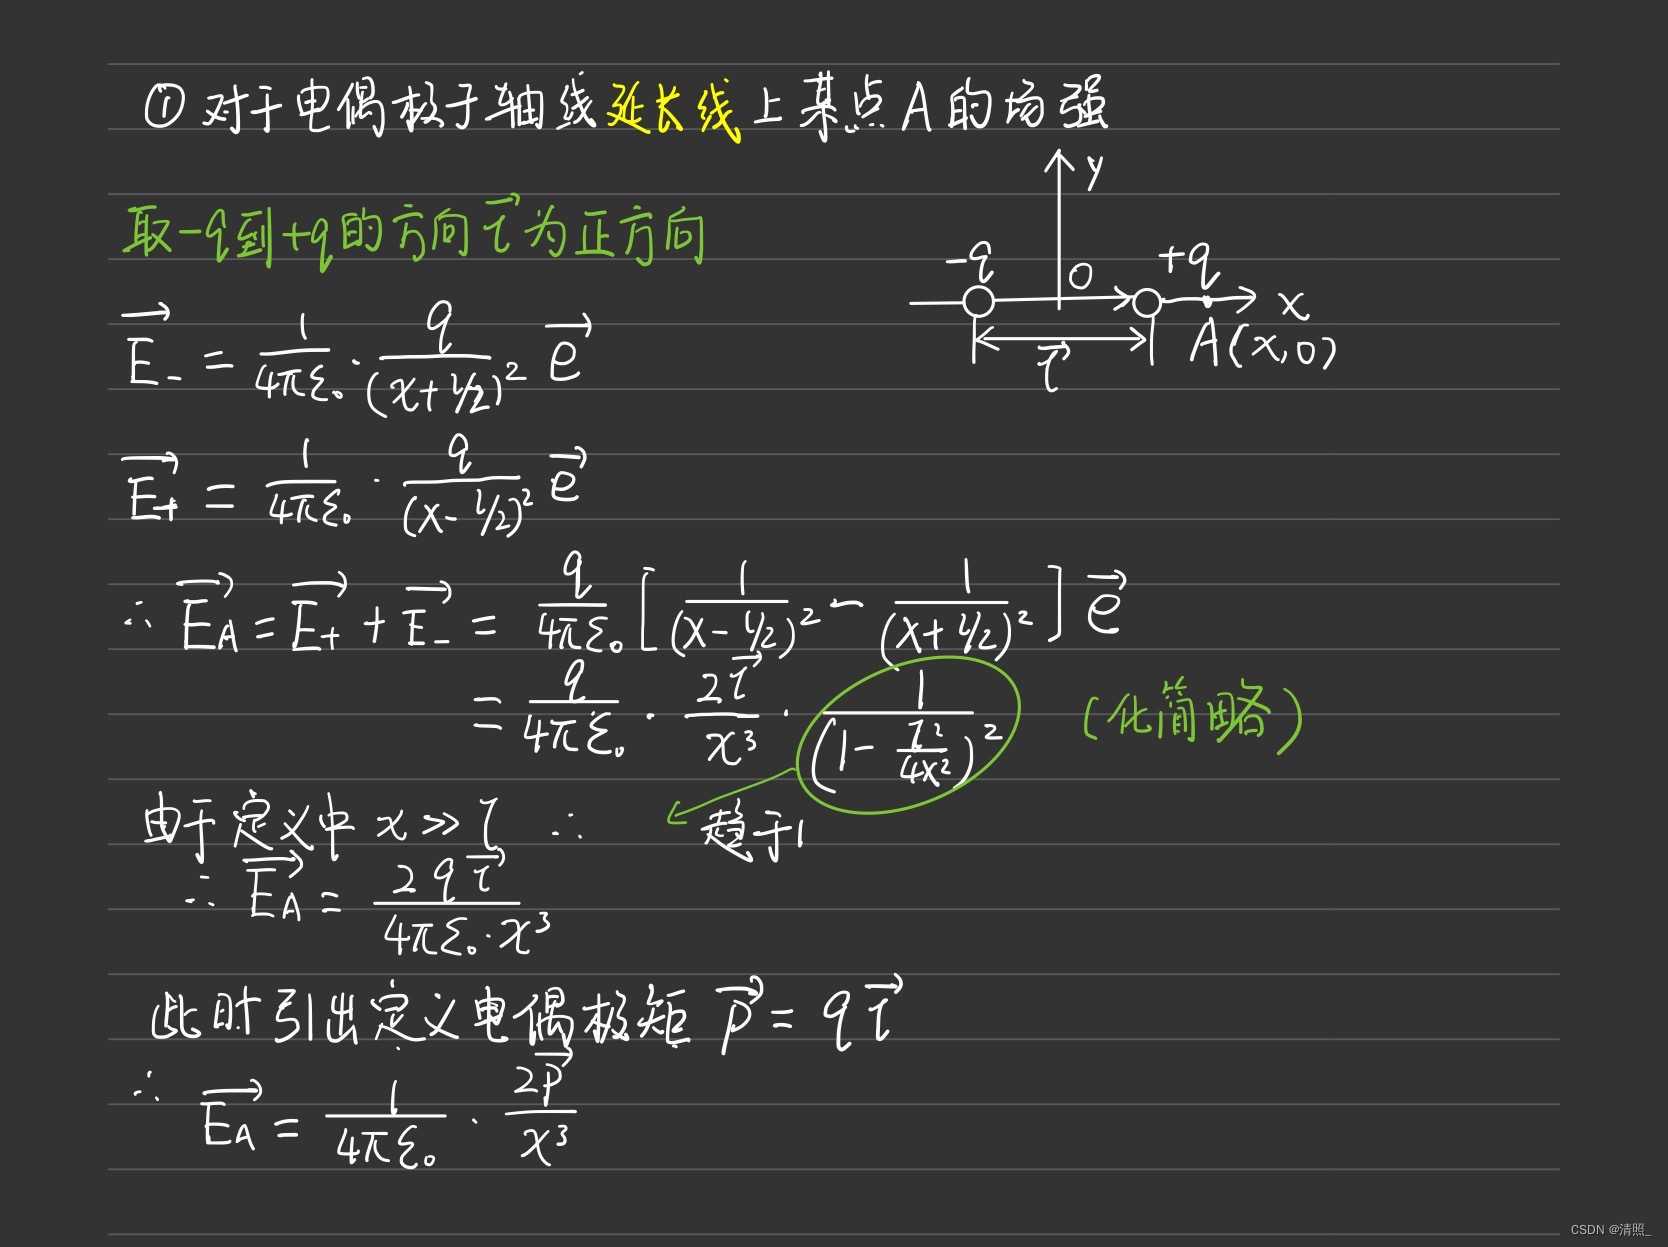 ① 对于电偶极于轴线延长线上某点A的场强
y
取-q到+q的方向 \vec{l} 为正方向
-q O +q x
A(x,0)
\vec{l}
\vec{E_-} = \frac{1}{4πε_0} · \frac{q}{(x+l/2)^2} \vec{e}
\vec{E_+} = \frac{1}{4πε_0} · \frac{q}{(x-l/2)^2} \vec{e}
∴ \vec{E_A} = \vec{E_+} + \vec{E_-} = \frac{q}{4πε_0} [\frac{1}{(x-l/2)^2} - \frac{1}{(x+l/2)^2}] \vec{e}
= \frac{q}{4πε_0} · \frac{2\vec{l}}{x^3} · \frac{1}{(1-\frac{l^2}{4x^2})^2} (化简略)
由于定义中 x≫l ∴ 趋于1
∴ \vec{E_A} = \frac{2q\vec{l}}{4πε_0·x^3}
此时引出定义电偶极矩 \vec{p} = q\vec{l}
∴ \vec{E_A} = \frac{1}{4πε_0} · \frac{2\vec{p}}{x^3}
CSDN @清照_